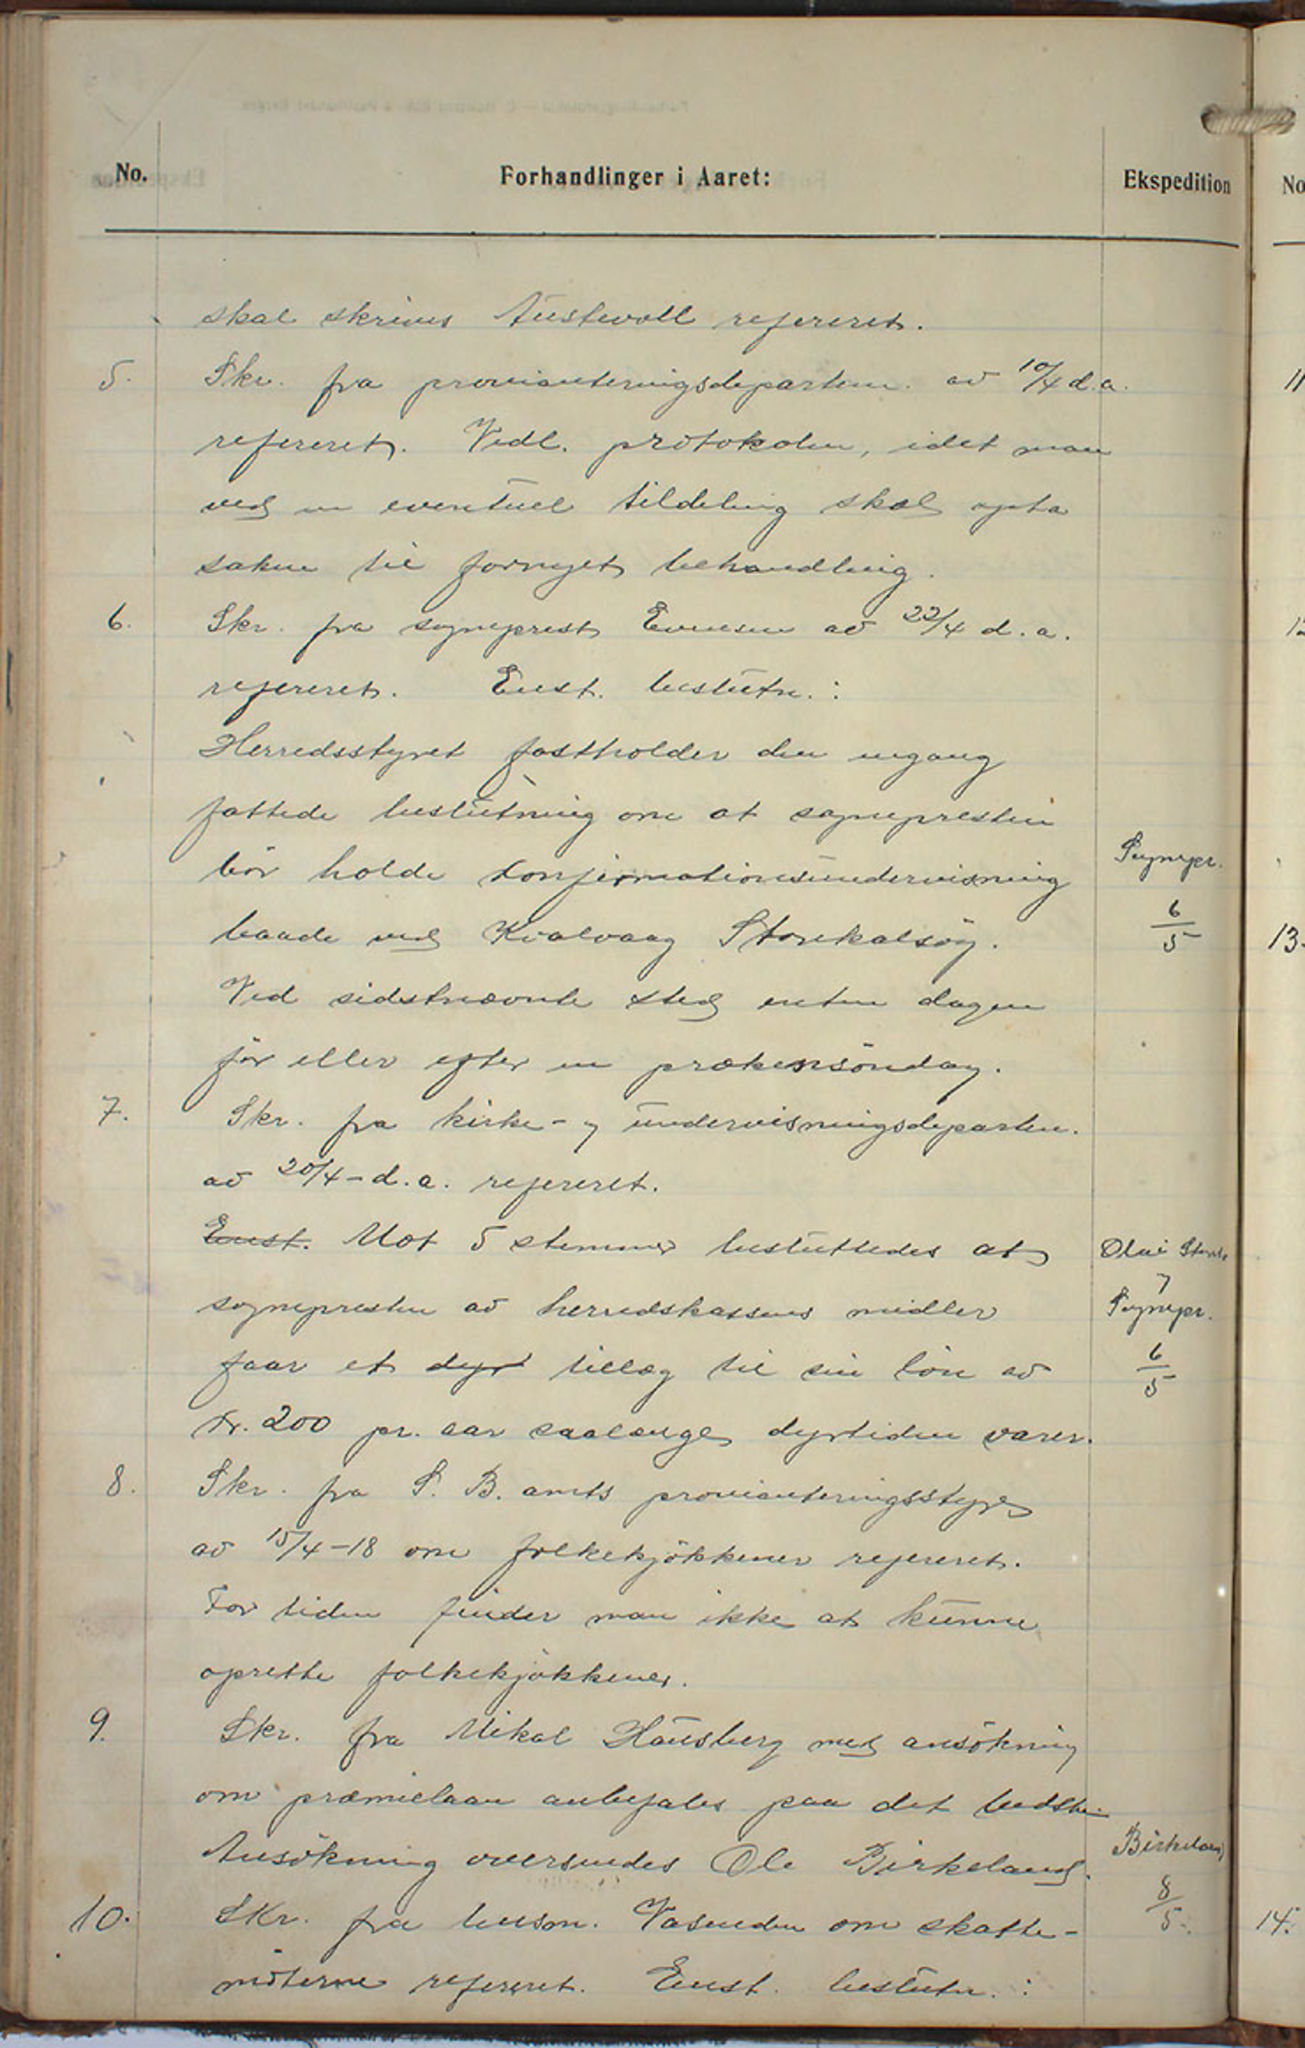 No. Forhandlinger i Aaret: Ekspedition No
skal skrives Austevoll refereret.
5. Skr. fra provianteringsdepartem. av 10/4 d.a. 11
refereret. Vedl. protokolen, idet man
ved en eventuel tildeling skal opta
saken til fornyet behandling.
6. Skr. fra sogneprest Evensen av 22/4 d.a.
refereret. Enst. beslutn.:
Herredsstyret fastholder den engang
fattede beslutning om at sognepresten
bör holde konfirmationsundervisning Sognepr.
baade ved Kvalvaag Storekalsöy. 6/5 13.
Ved sidstnævnte sted enten dagen
för eller efter en prækensöndag.
7. Skr. fra kirke- og undervisningsdepartem.
av 20/4 - d.a. refereret.
Enst. Mot 5 stemmer besluttedes at Olai
sognepresten av herredskassens midler Sognepr.
faar et dyr tillæg til sin lön av 6/5
kr. 200 pr. aar saalenge dyrtiden varer.
8. Skr. fra S. B. amts provianteringsstyre
av 15/4-18 om folkekjökkener refereret.
For tiden finder man ikke at kunne
oprette folkekjökkener.
9. Skr. fra Mikal Hausberg med ansökning
om præmielaan anbefales paa det bedste.
Ansökning oversendes Ole Birkeland. Birkeland
10. Skr. fra lensm. Vasenden om skatte- 8/5 14.
möterne refereret. Enst. beslutn.: